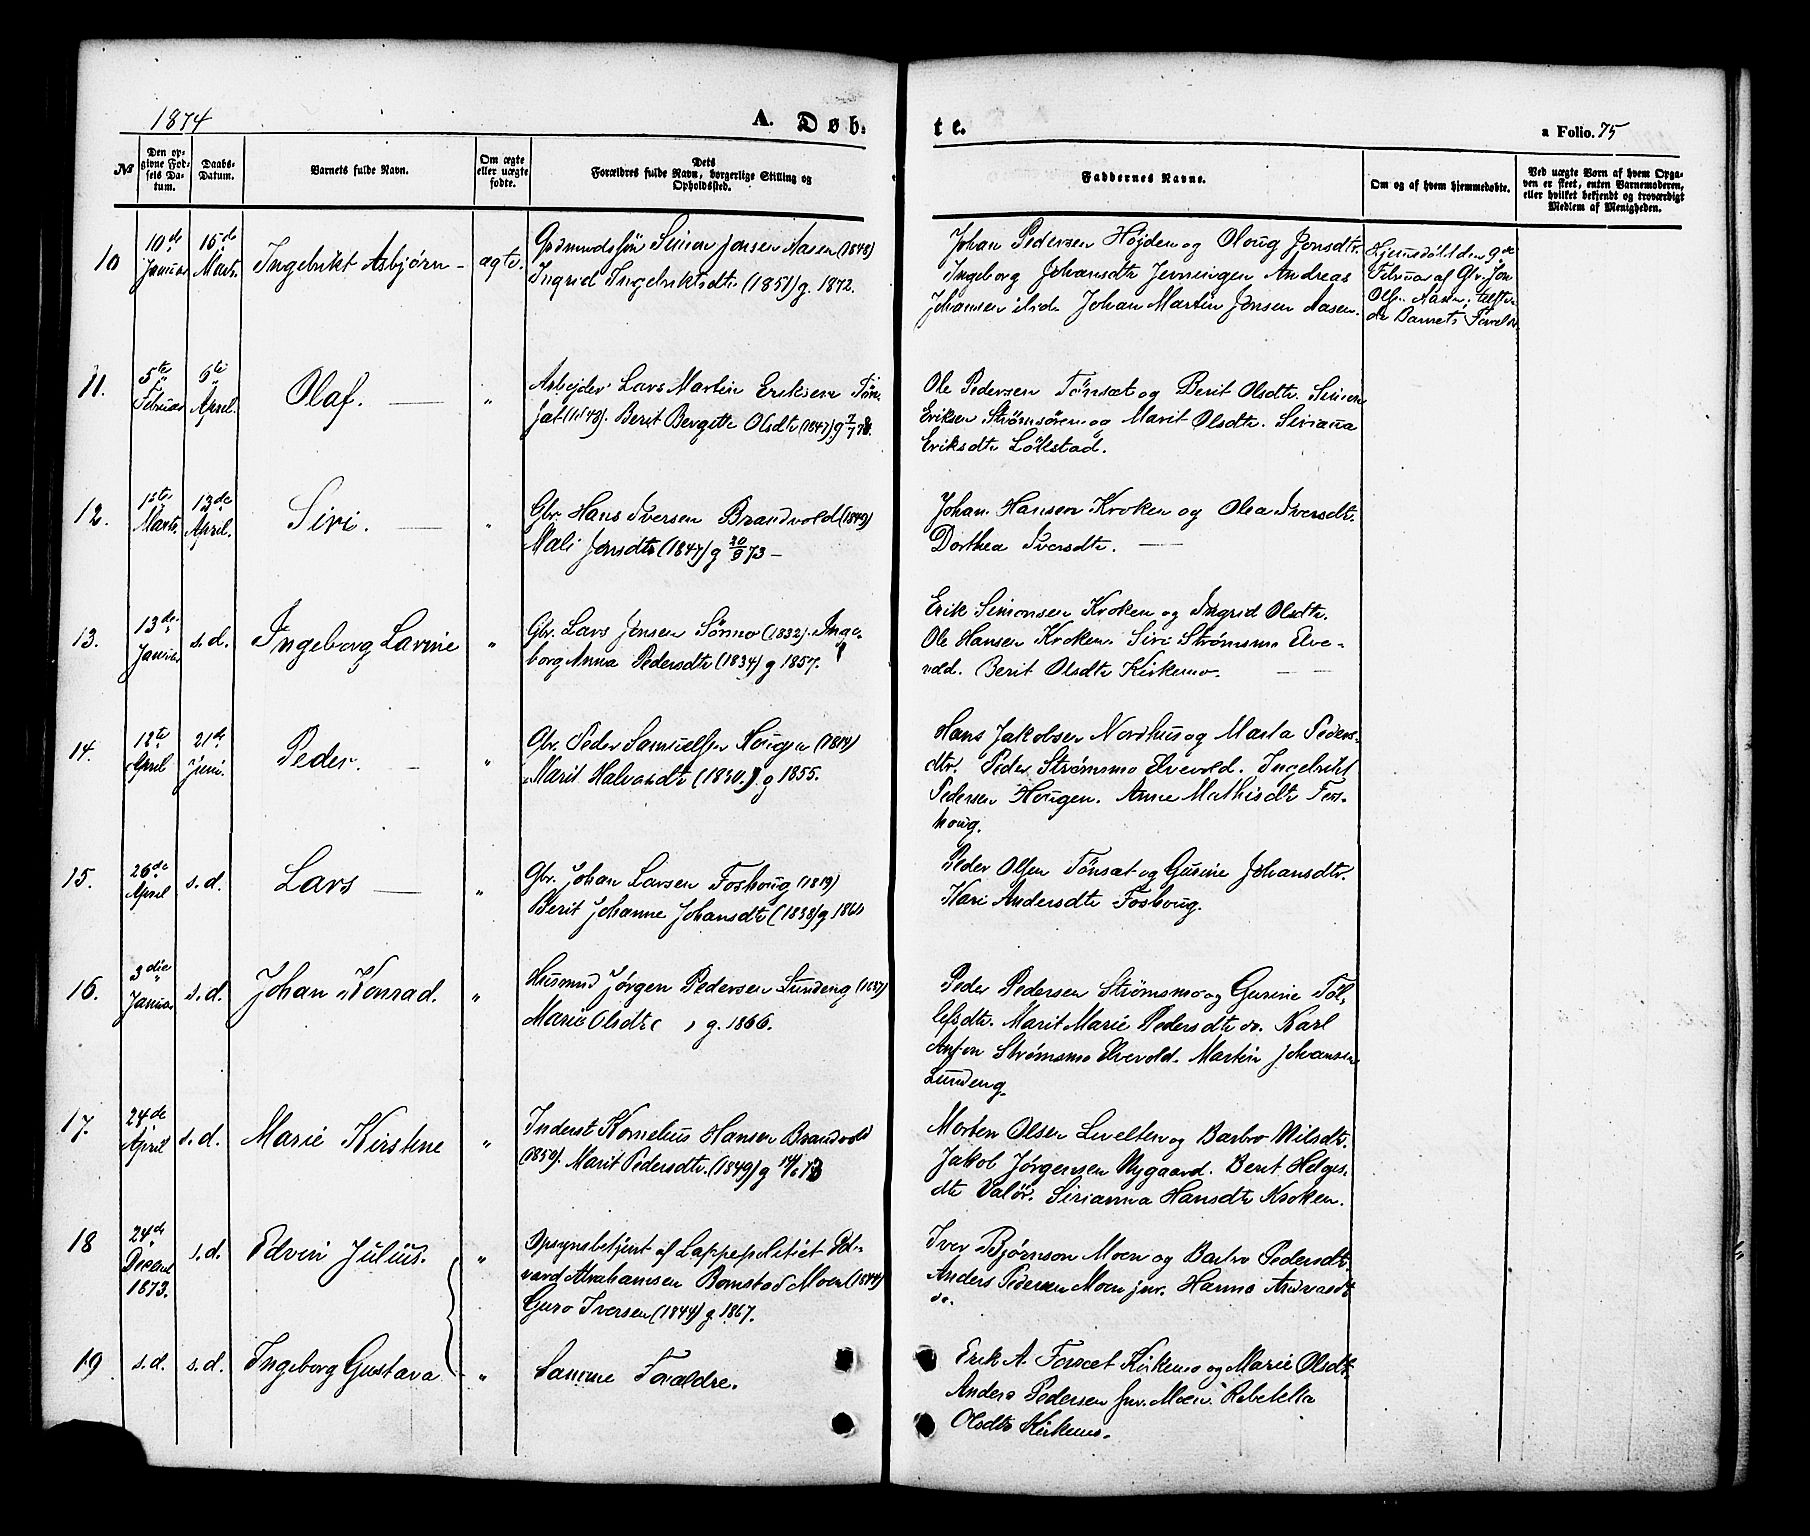 1874
A. Døb-
te.
a Folio. 75
№
Den op-
givne Fød-
sels Da-
tum.
Daabs-
Datum.
Barnets fulde Navn.
Om ægte
eller uægte
fødte.
Dets
Forældres fulde Navn, borgerlige Stilling og
Opholdssted.
Faddernes Navne.
Om og af hvem hjemmedøbte.
Ved uægte Børn af hvem Opga-
ven er skeet, enten Barnemoderen,
eller hvilket bekjendt og troværdigt
Medlem af Menigheden.
10
10de
Januar
15de
Marts
Ingebrikt Asbjørn -
ægte.
Gaardmandssøn Simon Jonsen Aasen (1848)
Ingrid Ingebriktsdtr (1851) g. 1872.
Johan Pedersen Højden og Oloug Jonsdtr.
Ingeborg Johansdtr Jenningen Andreas
Johansen ibid. Johan Martin Jonsen Aasen.
Hjemmedøbt den 9de
Februar af Gbr. Jon
Ols. Aasen;
Barnets Forældre
11.
5te
Februar
6te
April.
Olaf. —
"
Arbejder Lars Martin Eriksen Tøn-
sæt (1843). Berit Bergitte Olsdtr (1847) g 2/7 73.
Ole Pedersen Tönsæt og Berit Olsdtr. Simon
Eriksen Strømsören og Marit Olsdtr. Sirianna
Eriksdtr Lökstad.
12.
1ste
Marts.
13de
April.
Siri. —
"
Gbr. Hans Iversen Brandvold (1849)
Mali Jonsdtr (1847) g 20/9 73 -
Johan Hansen Kroken og Olea Iversdtr.
Dorthea Iversdtr. —
13.
13de
Januar
s.d.
Ingeborg Lavine
"
Gbr. Lars Jonsen Sönmo (1832). Inge-
borg Anna Pedersdtr (1834) g 1857.
Erik Simonsen Kroken og Ingrid Olsdtr.
Ole Hansen Kroken. Siri Strømsmo Elve-
vold. Berit Olsdtr Kirkemo. —
14.
12te
April
21de
Juni.
Peder. —
"
Gbr. Peder Samuelsen Hougen (1819)
Marit Halvorsdtr (1830.) g 1855.
Hans Jakobsen Nordhus og Marta Peders-
dtr. Peder Strømsmo Elvevold. Ingebrikt
Pedersen Hougen. Anne Mathisdtr Fos-
houg.
15.
26de
April
s.d.
Lars —
"
Gbr. Johan Larsen Foshoug (1819)
Berit Johanne Johansdtr (1838) g 1860
Peder Olsen Tönsæt og Gurine Johansdtr.
Kari Andersdtr Foshoug.
16.
3die
Januar
s.d.
Johan Konrad.
"
Husmnd Jørgen Pedersen Lundeng (1837)
Marie Olsdtr ( ) g. 1866.
Peder Pedersen Strømsmo og Gurine Tøl-
lefsdtr. Marit Marie Pedersdtr do. Karl
Anton Strømsmo Elvevold. Martin Johansen
Lundeng.
17.
24de
April
s.d.
Marie Kirstine
"
Inderst Kornelius Hansen Brandvold
(1850). Marit Pedersdtr. (1849) g 14/6 73
Morten Olsen Levelten og Barbro Nilsdtr.
Jakob Jørgensen Nygaard. Berit Helges-
dtr Valör. Sirianna Hansdtr Kroken.
18
24de
Decemb.
1873.
s.d.
Edvin Julius.
"
Opsynsbetjent af Lappepolitiet Ed-
vard Abrahamsen Bomstad Moen (1844)
Guro Iversen (1844) g. 1867.
Iver Bjørnson Moen og Barbro Pedersdtr.
Anders Pedersen Moen jnr. Hanna
do.
19
s.d.
s.d.
Ingeborg Gustava
"
Samme Forældre.
Erik A. Forsæt Kirkemo og Marie Olsdtr.
Anders Pedersen jnr. Moen. Rebekka
Olsdtr Kirkemo.